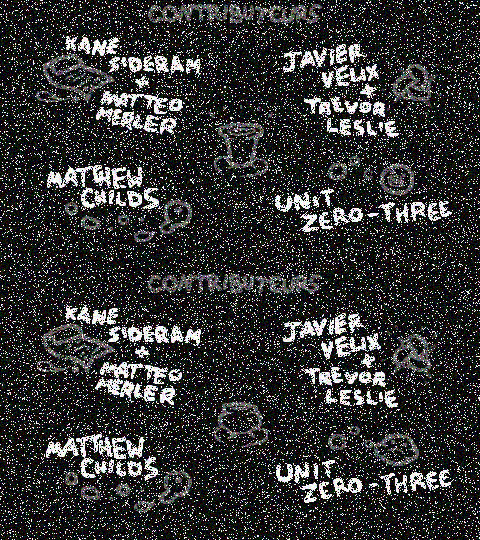 CONTRIBUTEURS
KANE
SIDERAM
+
MATTEO
MERLER
JAVIER
VELIX
+
TREVOR
LESLIE
MATTHEW
CHILDS
UNIT
ZERO-THREE
CONTRIBUTEURS
KANE
SIDERAM
+
MATTEO
MERLER
JAVIER
VELIX
+
TREVOR
LESLIE
MATTHEW
CHILDS
UNIT
ZERO-THREE